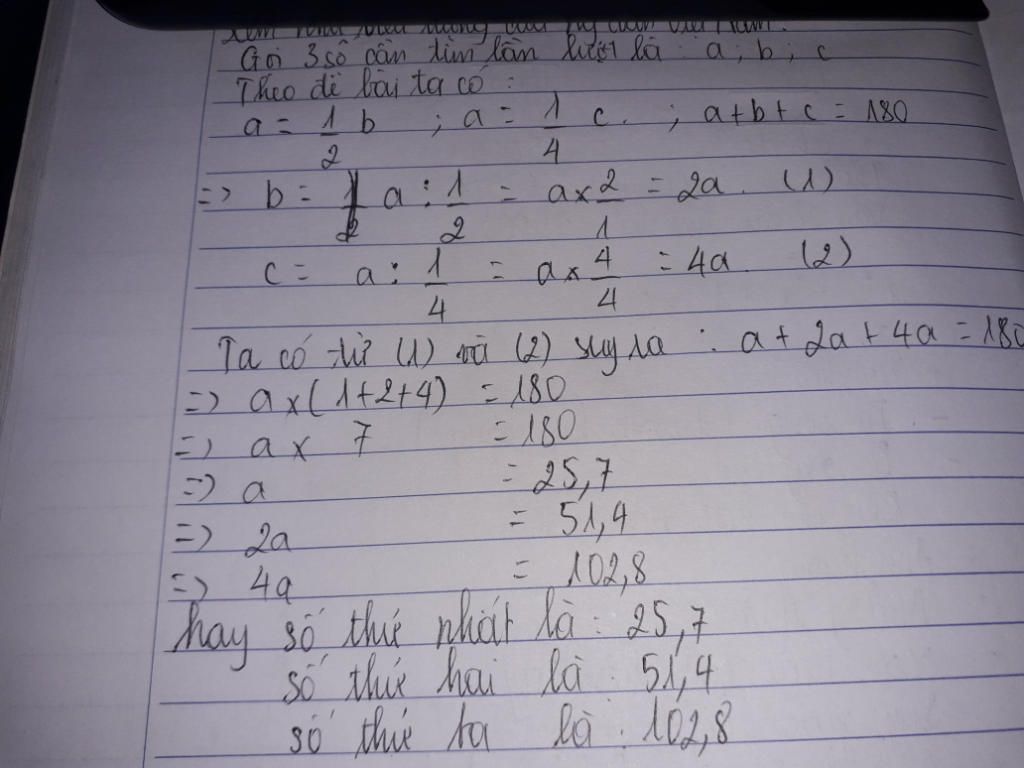 Gọi 3 số cần tìm lần lượt là : a ; b ; c
Theo đề bài ta có :
a = 1/2 b ; a = 1/4 c. ; a+b+c = 180
=> b = a : 1/2 = a x 2/1 = 2a. (1)
c = a : 1/4 = a x 4/4 = 4a (2)
Ta có từ (1) và (2) suy ra : a + 2a + 4a = 180
=> a x (1+2+4) = 180
=> a x 7 = 180
=> a = 25,7
=> 2a = 51,4
=> 4a = 102,8
hay số thứ nhất là : 25,7
số thứ hai là : 51,4
số thứ ba là : 102,8